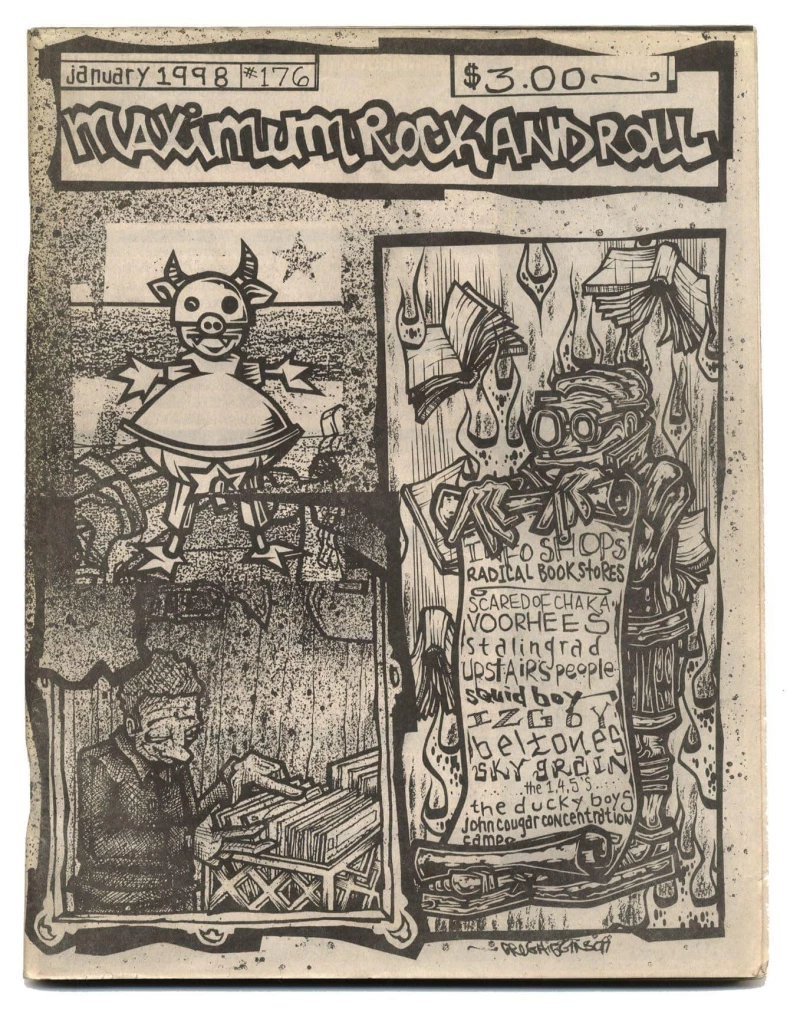 january 1998 #176
$3.00
maximumRockANDRoll
INFO SHOPS
RADICAL BOOKSTORES
SCARED OF CHAKA
VOORHEES
stalingrad
UPSTAIRS people
squid boy
IZGBY
beltones
SKY GRAIN
the 1.4.5's
the ducky boys
John cougar concentration
camp